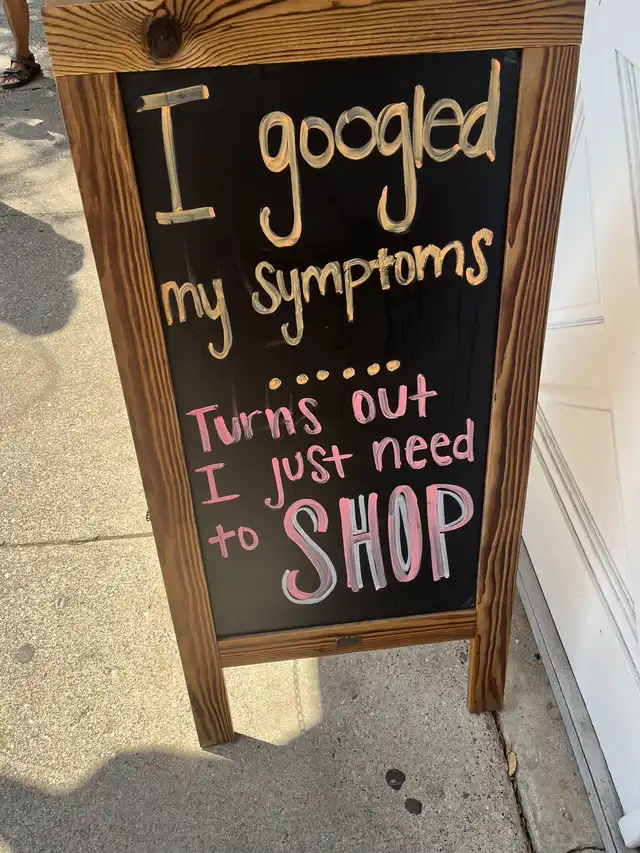 I googled
my symptoms
......
Turns out
I just need
to SHOP